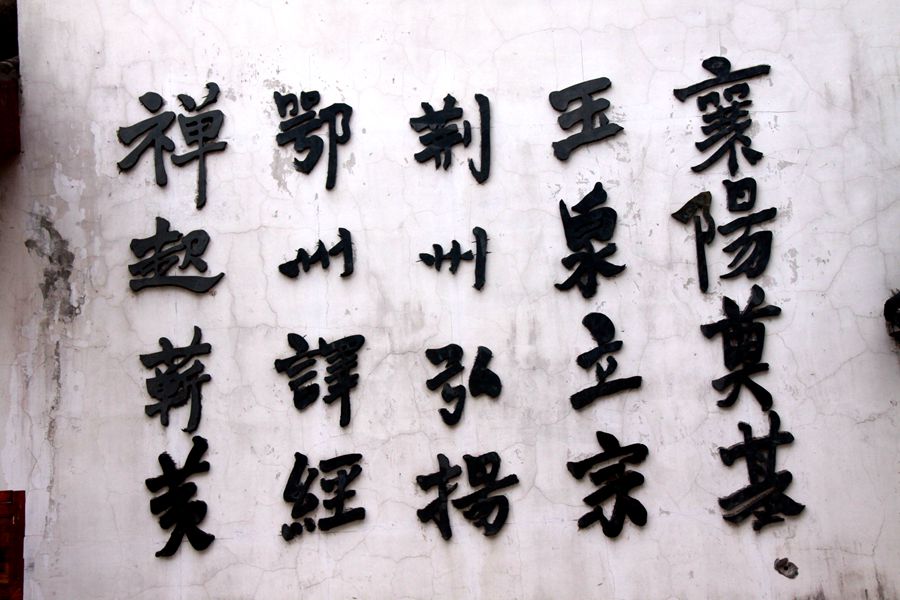 襄陽奠基
玉泉立宗
荆州弘揚
鄂州譯經
禪起蘄黄